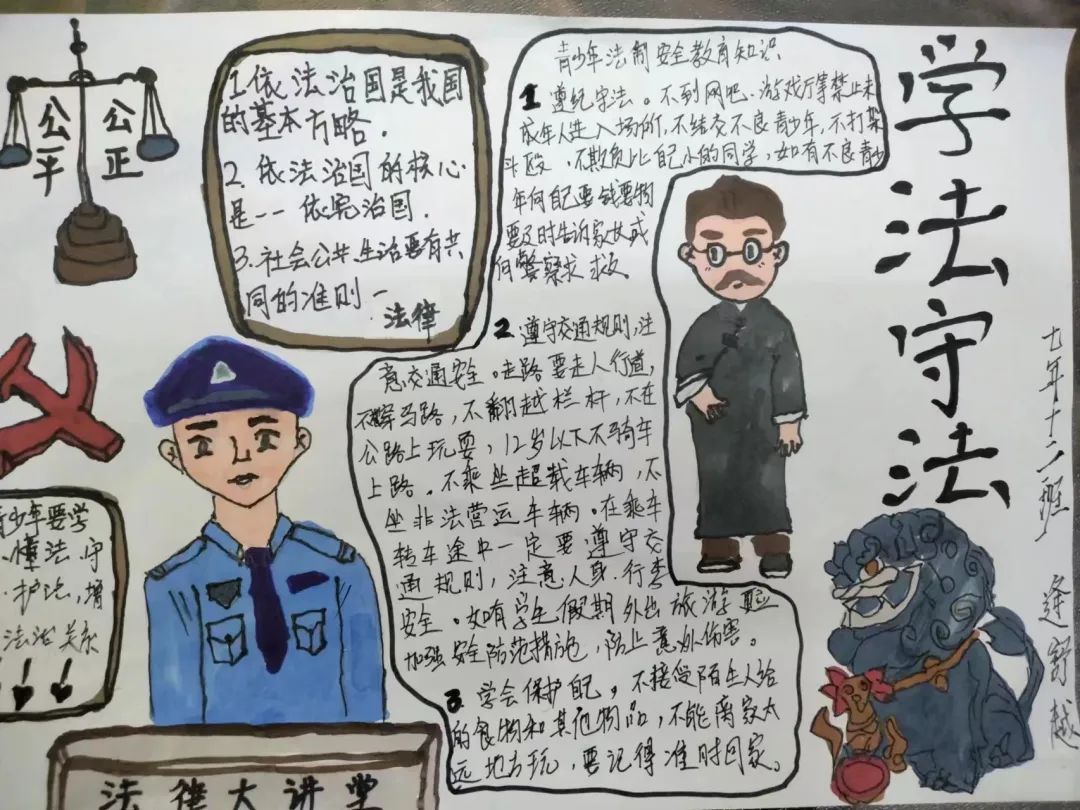 公平
公正
1.依法治国是我国
的基本方略.
2.依法治国的核心
是--依宪治国.
3.社会公共生活要有共
同的准则一
法律
青少年法制安全教育知识
1 遵纪守法。不到网吧.游戏厅等禁止未
成年人进入场所,不结交不良青少年,不打架
斗殴.不欺负比自己小的同学,如有不良青少
年向自己要钱要物
要及时告诉家长或
向警察求救
2 遵守交通规则,注
意交通安全。走路要走人行道,
不横穿马路,不翻越栏杆,不在
公路上玩耍,12岁以下不骑车
上路.不乘坐超载车辆,不
坐非法营运车辆。在乘车
转车途中一定要遵守交
通规则,注意人身.行李
安全。如有学生假期外出旅游更应
加强安全防范措施,防止意外伤害。
3 学会保护自己,不接受陌生人给
的食物和其他物品,不能离家太
远地方玩,要记得准时回家。
学法守法
七年十二班
逄舒越
青少年要学
.懂法.守
.护法,增
法治关系
法律大讲堂